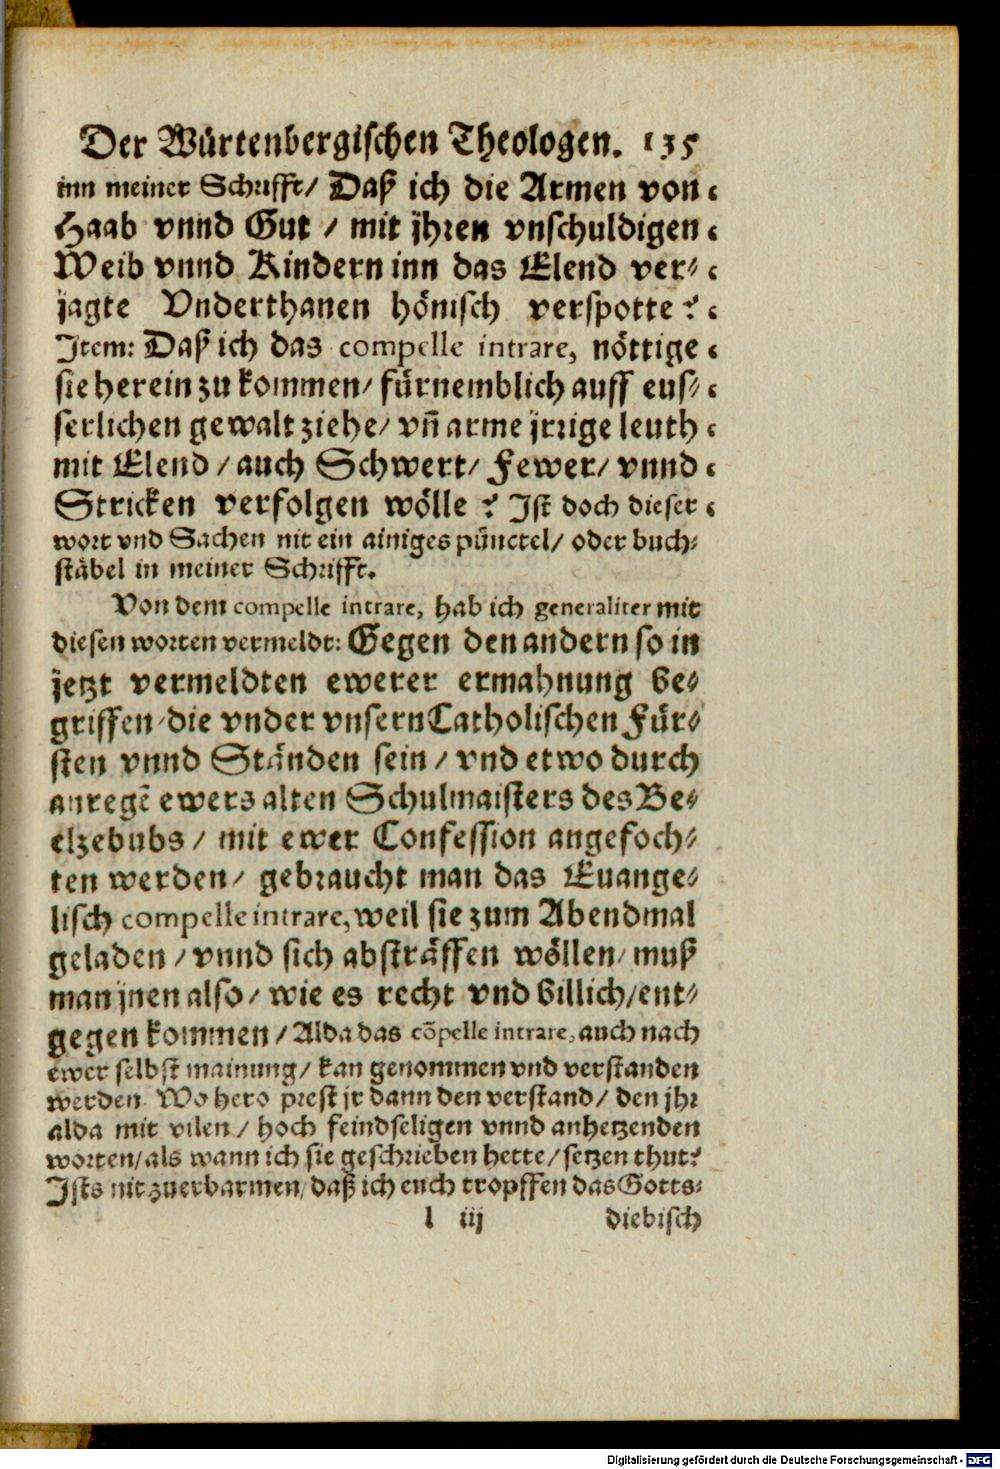 Der Würtenbergischen Theologen. 135
inn meiner Schrifft/ Daß ich die Armen von
Haab vnnd Gut / mit jhren vnschuldigen
Weib vnnd Kindern inn das Elend ver⸗
jagte Vnderthanen hönisch verspotte?
Item: Daß ich das compelle intrare, nöttige
sie herein zu kommen/ fürnemblich auff eus⸗
serlichen gewalt ziehe/ vn̄ arme jrrige leuth
mit Elend / auch Schwert/ Fewer/ vnnd
Stricken verfolgen wölle ? Ist doch dieser
wort vnd Sachen nit ein ainiges pünctel/ oder buch⸗
stäbel in meiner Schrifft.
Von dem compelle intrare, hab ich generaliter mit
diesen worten vermeldt: Gegen den andern so in
jetzt vermeldten ewerer ermahnung be⸗
griffen/ die vnder vnsern Catholischen Für⸗
sten vnnd Ständen sein / vnd etwo durch
anregē ewers alten Schulmaisters des Be⸗
elzebubs / mit ewer Confession angefoch⸗
ten werden/ gebraucht man das Euange⸗
lisch compelle intrare, weil sie zum Abendmal
geladen / vnnd sich absträffen wöllen/ muß
man jnen also/ wie es recht vnd billich/ ent⸗
gegen kommen / Alda das cōpelle intrare, auch nach
ewer selbst mainung/ kan genommen vnd verstanden
werden. Wo hero prest jr dann den verstand/ den jhr
alda mit vilen / hoch feindseligen vnnd anhetzenden
worten/ als wann ich sie geschrieben hette/ setzen thut?
Ists nit zuerbarmen/ daß ich euch tropffen das Gotts⸗
l iij diebisch
Digitalisierung gefördert durch die Deutsche Forschungsgemeinschaft - DFG